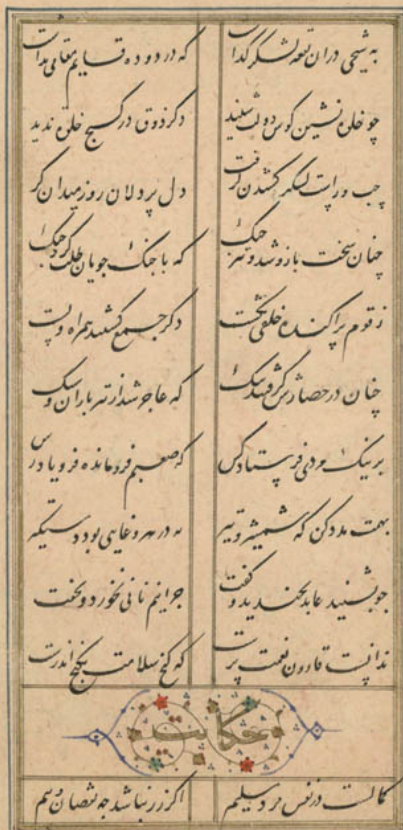 به شیخی در آن بقعه لشکر گذاشت که در دوده قایم مقامی نداشت
چو خلوت نشین کوس دولت شنید دگر ذوق در کنج خلوت ندید
چپ و راست لشکر کشیدن گرفت دل پردلان روز میدان گر
چنان سخت بازو شد و تیز چنگ که با جنگ جویان طلب کرد جنگ
ز قوم پراکنده خلقی بکشت دگر جمع گشتند همراه و پشت
چنان در حصارش گرفتند تنگ که عاجز شد از تیر باران و سنگ
بر نیک مردی فرستاد کس که صعبم فرو مانده فریاد رس
بهمت مدد کن که شمشیر و تیر نه در هر وغایی بود دستگیر
چو بشنید عابد بخندید و گفت چرا نیم نانی نخورد و نخفت
ندانست قارون نعمت پرست که گنج سلامت بکنج اندرست
حکایت
کمالست در نفس مرد سلیم اگر زر نباشد چه نقصان و بیم